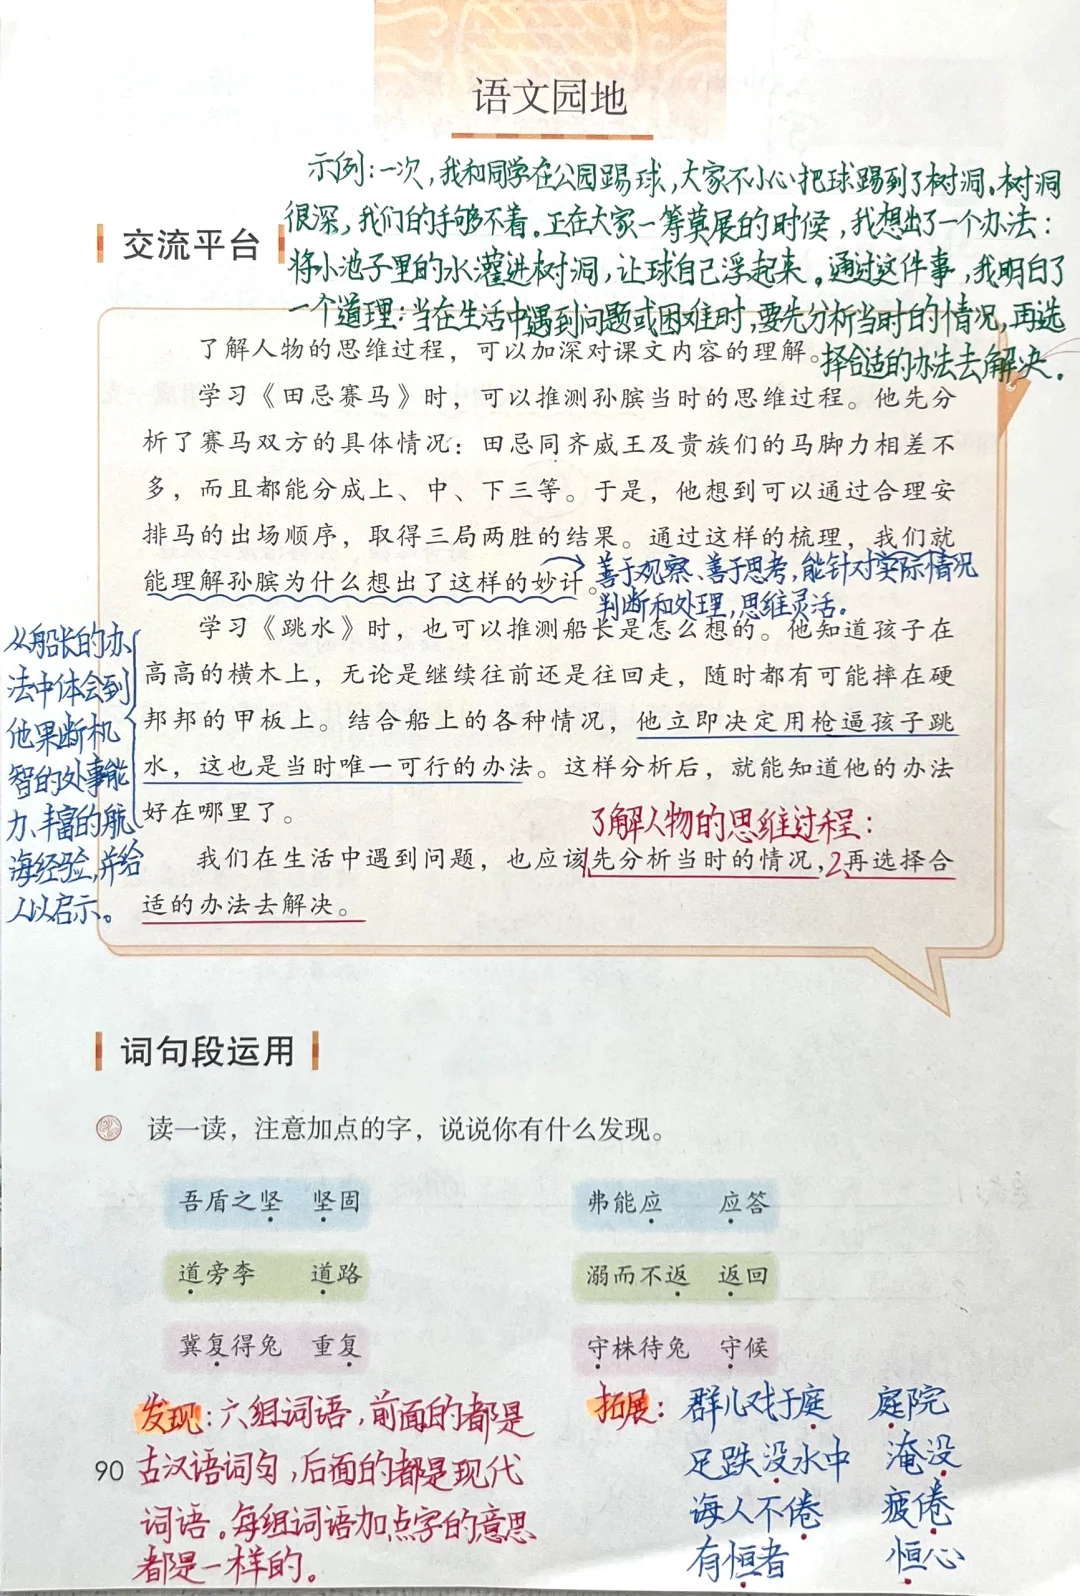 语文园地
示例:一次,我和同学在公园踢球,大家不小心把球踢到了树洞。树洞
很深,我们的手够不着。正在大家一筹莫展的时候,我想出了一个办法:
将小池子里的水灌进树洞,让球自己浮起来。通过这件事,我明白了
一个道理:当在生活中遇到问题或困难时,要先分析当时的情况,再选
择合适的办法去解决。
交流平台
了解人物的思维过程，可以加深对课文内容的理解。
学习《田忌赛马》时，可以推测孙膑当时的思维过程。他先分
析了赛马双方的具体情况：田忌同齐威王及贵族们的马脚力相差不
多，而且都能分成上、中、下三等。于是，他想到可以通过合理安
排马的出场顺序，取得三局两胜的结果。通过这样的梳理，我们就
能理解孙膑为什么想出了这样的妙计。
善于观察、善于思考,能针对实际情况
判断和处理,思维灵活。
学习《跳水》时，也可以推测船长是怎么想的。他知道孩子在
高高的横木上，无论是继续往前还是往回走，随时都有可能摔在硬
邦邦的甲板上。结合船上的各种情况，他立即决定用枪逼孩子跳
水，这也是当时唯一可行的办法。这样分析后，就能知道他的办法
好在哪里了。
从船长的办
法中体会到
他果断机
智的处事能
力、丰富的航
海经验,并给
人以启示。
了解人物的思维过程:
我们在生活中遇到问题，也应该1.先分析当时的情况，2.再选择合
适的办法去解决。
词句段运用
读一读，注意加点的字，说说你有什么发现。
吾盾之坚 坚固 弗能应 应答
道旁李 道路 溺而不返 返回
冀复得兔 重复 守株待兔 守候
发现:六组词语,前面的都是
古汉语词句,后面的都是现代
词语。每组词语加点字的意思
都是一样的。
拓展: 群儿戏于庭 庭院
足跌没水中 淹没
诲人不倦 疲倦
有恒者 恒心
90